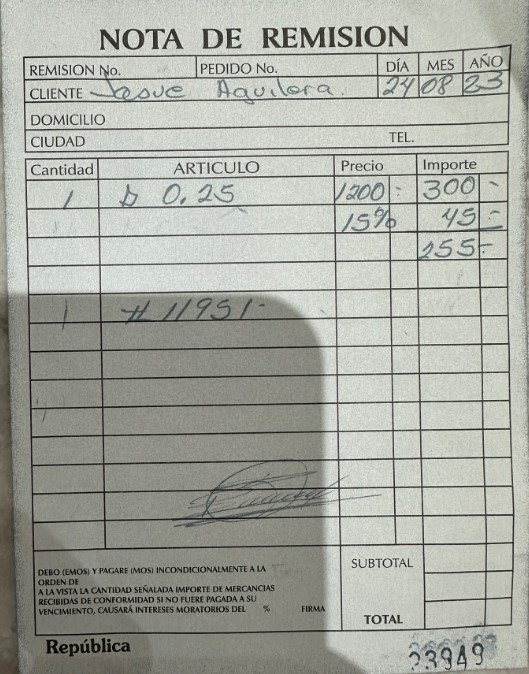 NOTA DE REMISION
REMISION No. PEDIDO No. DÍA MES AÑO
CLIENTE Josue Aguilera. 24 08 23
DOMICILIO
CIUDAD TEL.
Cantidad ARTICULO Precio Importe
1 D 0.25 1200- 300-
15% 45-
255-
1 # 11951-
DEBO (EMOS) Y PAGARE (MOS) INCONDICIONALMENTE A LA
ORDEN DE
A LA VISTA LA CANTIDAD SEÑALADA IMPORTE DE MERCANCIAS
RECIBIDAS DE CONFORMIDAD SI NO FUERE PAGADA A SU
VENCIMIENTO, CAUSARÁ INTERESES MORATORIOS DEL % FIRMA
SUBTOTAL
TOTAL
República
23949